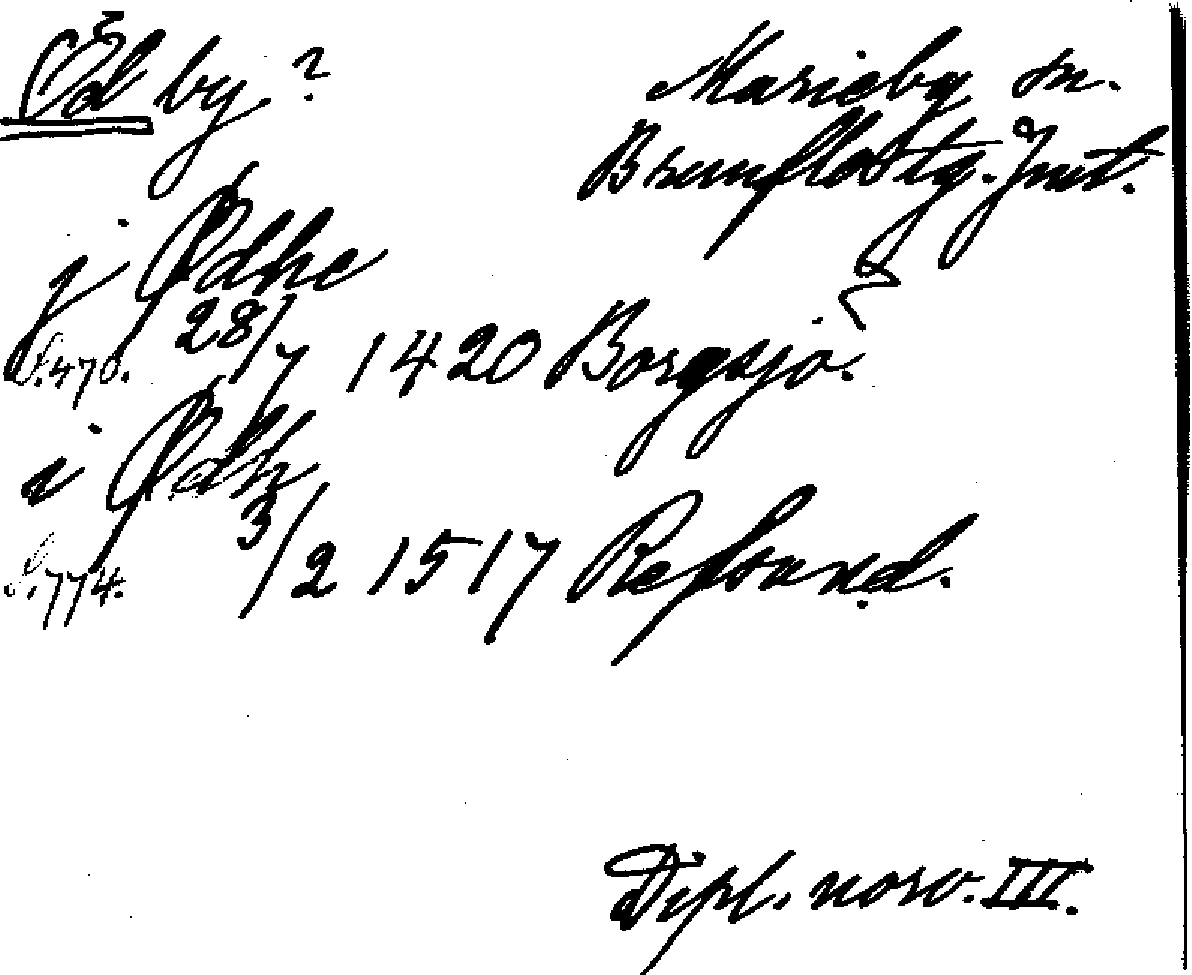 Öd by? Marieby sn.
Brunflo tg. Jmt.
j Ødhe
S. 470. 28/7 1420 Borgsjö.
i Ødh
S. 774. 3/2 1517 Refsund.
Dipl. norv. III.